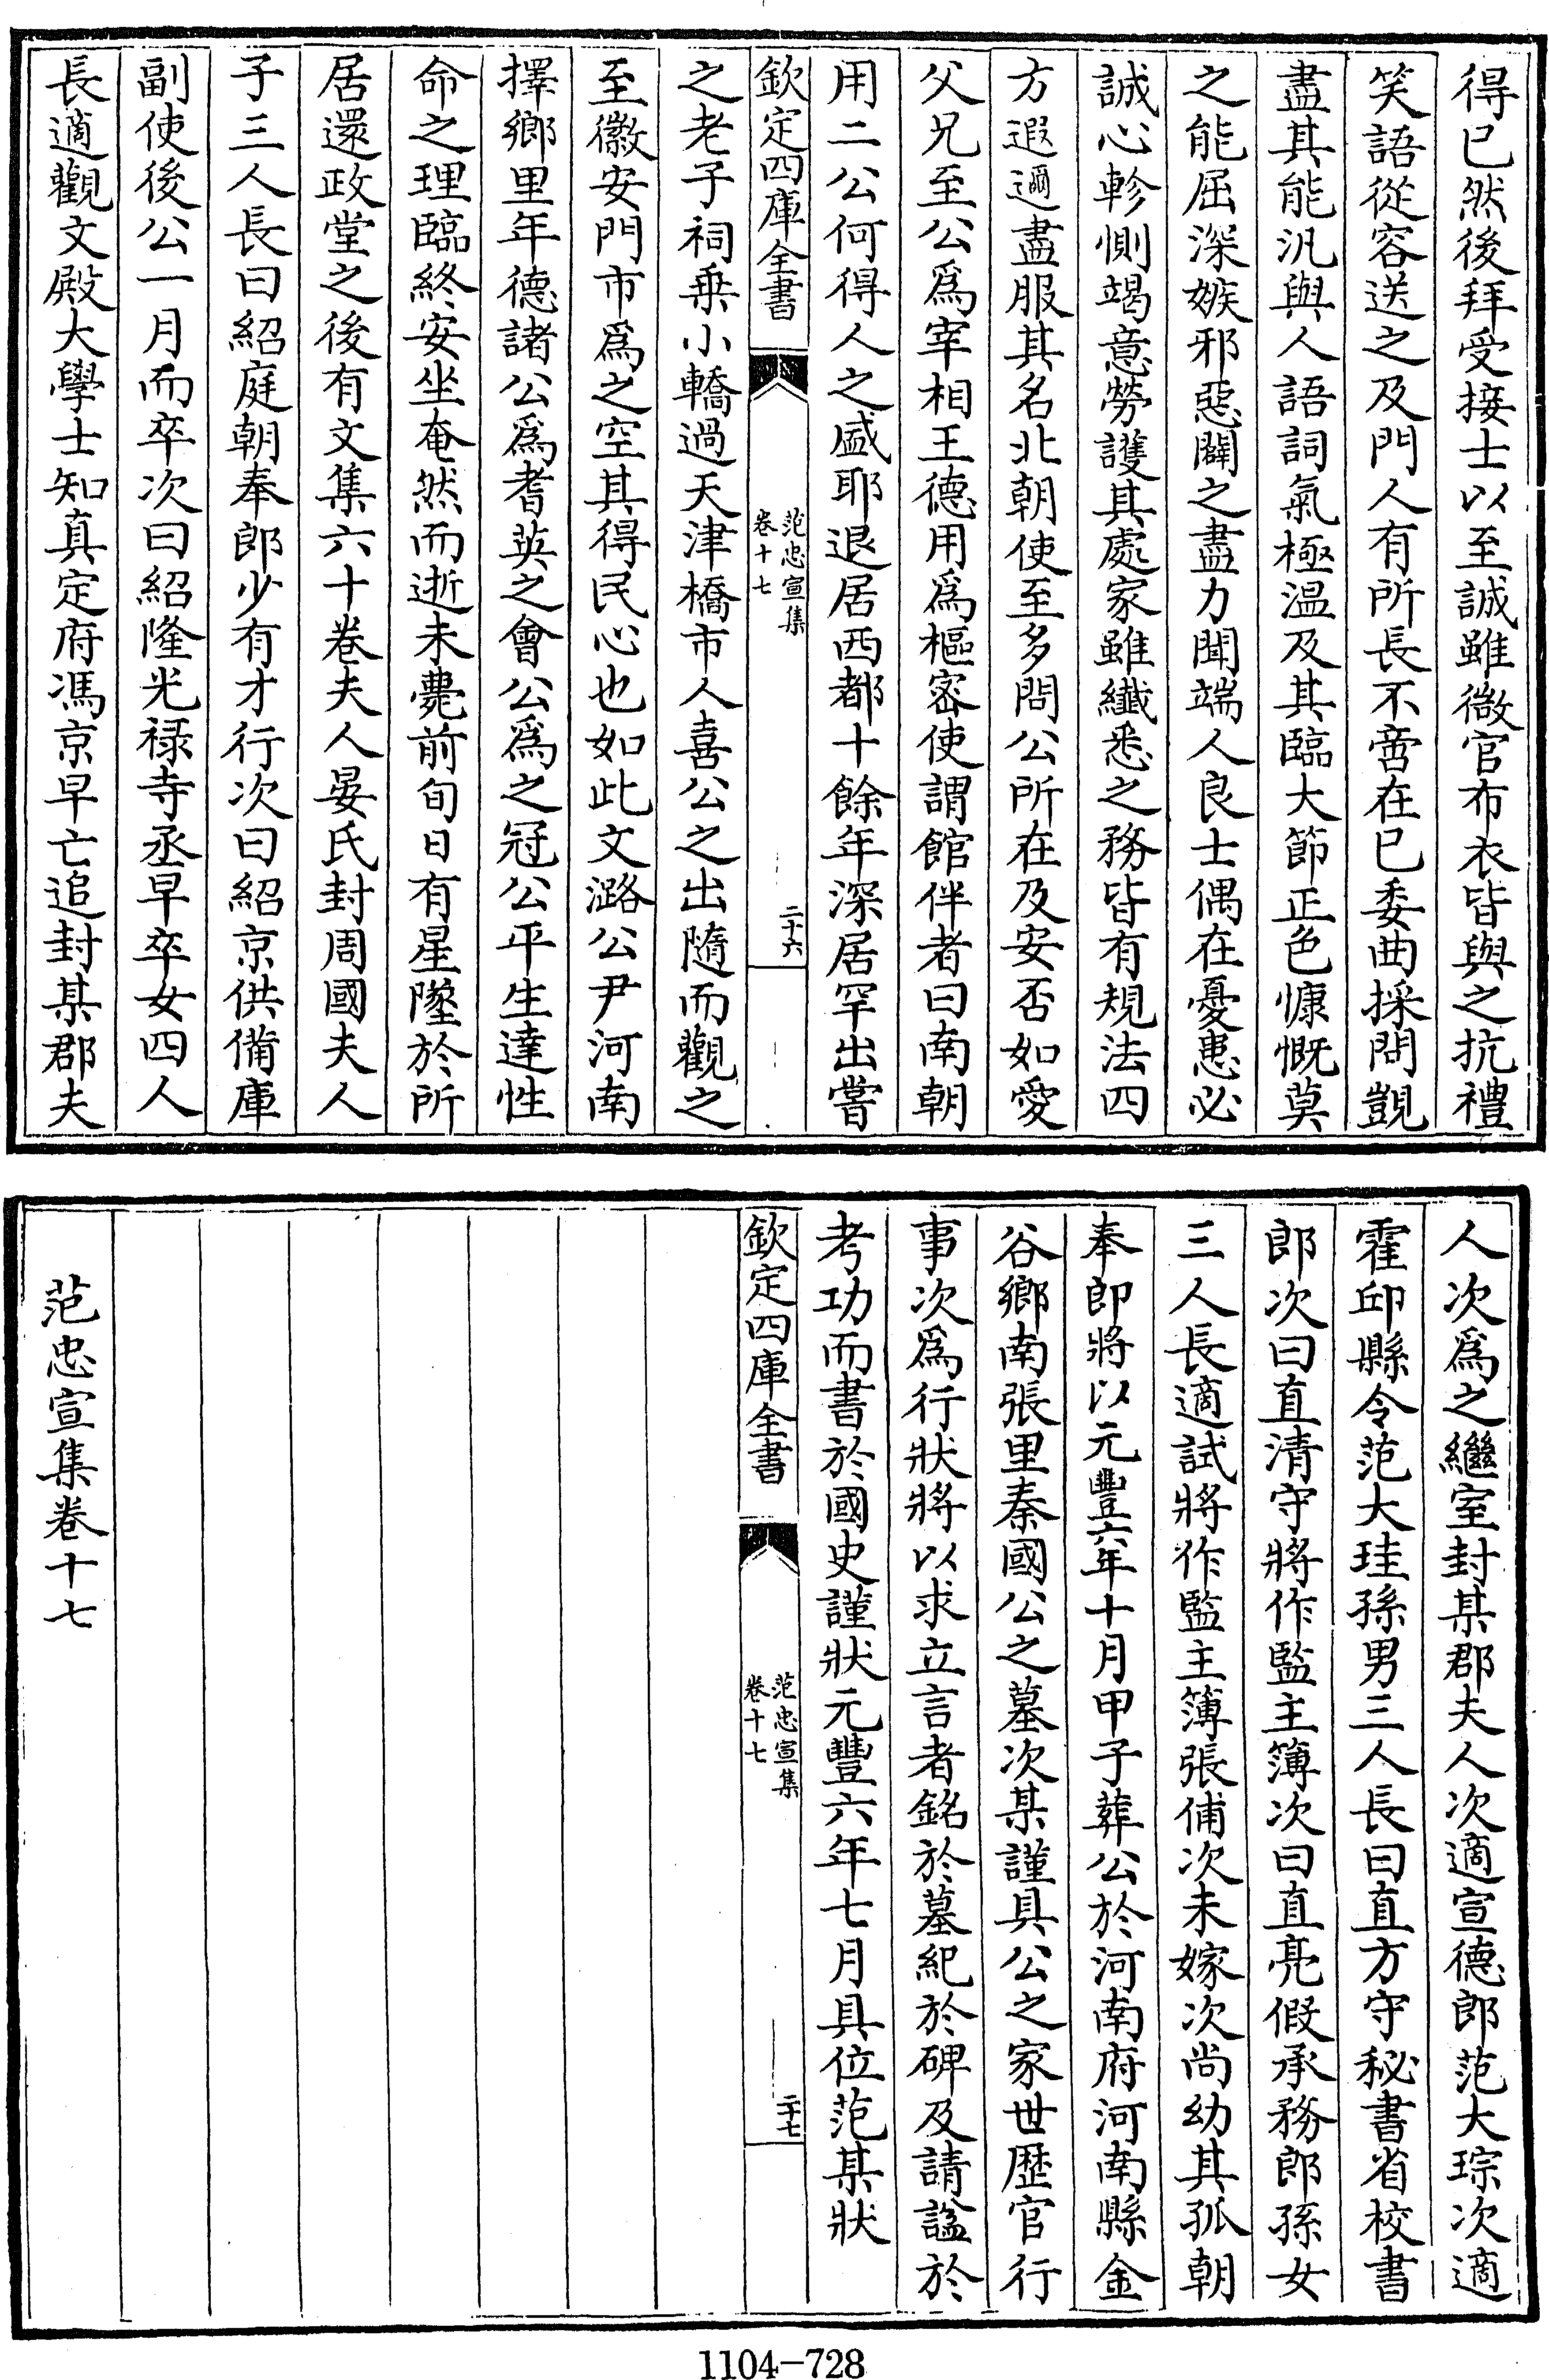 得已然後拜受接士以至誠雖微官布衣皆與之抗禮
笑語從容送之及門人有所長不啻在已委曲採問覬
盡其能汎與人語詞氣極溫及其臨大節正色慷慨莫
之能屈深嫉邪惡闢之盡力聞端人良士偶在憂患必
誠心軫惻竭意勞護其處家雖纖悉之務皆有規法四
方遐邇盡服其名北朝使至多問公所在及安否如愛
父兄至公爲宰相王德用爲樞密使謂館伴者曰南朝
用二公何得人之盛耶退居西都十餘年深居罕出嘗
欽定四庫全書
范忠宣集
卷十七
二十六
之老子祠乗小轎過天津橋市人喜公之出隨而觀之
至徽安門市爲之空其得民心也如此文潞公尹河南
擇鄉里年德諸公爲耆英之會公爲之冠公平生達性
命之理臨終安坐奄然而逝未薨前旬日有星墜於所
居還政堂之後有文集六十卷夫人晏氏封周國夫人
子三人長曰紹庭朝奉郎少有才行次曰紹京供備庫
副使後公一月而卒次曰紹隆光禄寺丞早卒女四人
長適觀文殿大學士知真定府馮京早亡追封某郡夫
人次爲之繼室封某郡夫人次適宣德郎范大琮次適
霍邱縣令范大珪孫男三人長曰直方守秘書省校書
郎次曰直清守將作監主簿次曰直亮假承務郎孫女
三人長適試將作監主簿張俌次未嫁次尚幼其孤朝
奉郎將以元豐六年十月甲子葬公於河南府河南縣金
谷鄉南張里秦國公之墓次某謹具公之家世歷官行
事次爲行狀將以求立言者銘於墓紀於碑及請諡於
考功而書於國史謹狀元豐六年七月具位范某狀
欽定四庫全書
范忠宣集
卷十七
二十七
范忠宣集卷十七
1104-728